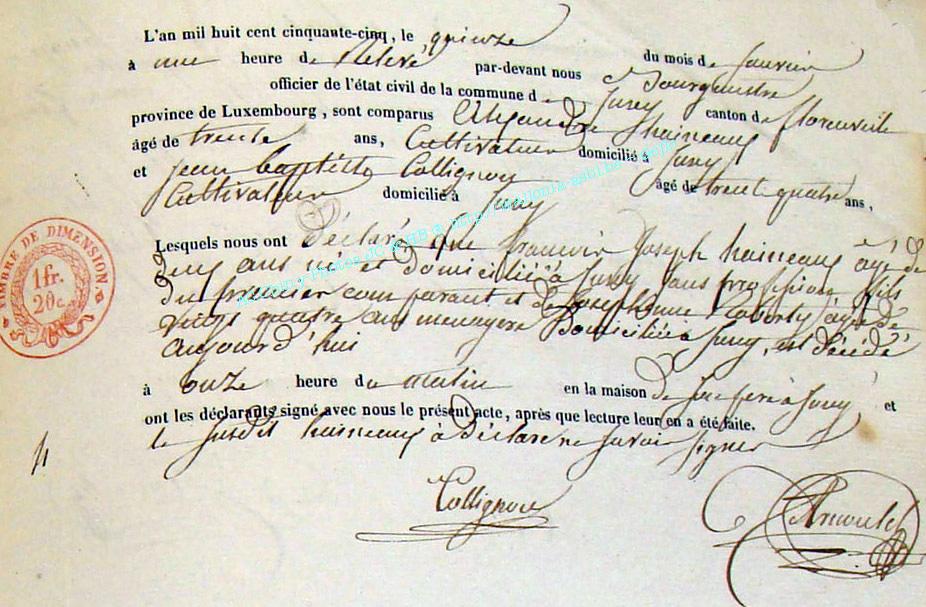 L'an mil huit cent cinquante-cinq, le quinze du mois de Janvier
à une heure de Relevé par-devant nous Bourgmestre
officier de l'état civil de la commune de Jzey canton de florenville
province de Luxembourg, sont comparus haineaux
âgé de trente ans, Cultivateur domicilié à
et jean baptiste Collignon âgé de trent quatre ans,
Cultivateur domicilié à
Lesquels nous ont déclaré que francois Joseph haineaux âgé de
deux ans né et domicilié à sans profession fils
du premier comparant et de Josephinne âgé de
vingt quatre ans menagere Domiciliée à est décédé
aujourd'hui
à onze heure du matin en la maison de à et
ont les déclarants signé avec nous le présent acte, après que lecture leur en a été faite.
le susdit haineaux à déclaré ne savoir signer
Collignon
TIMBRE DE DIMENSION
1 fr.
20 c.